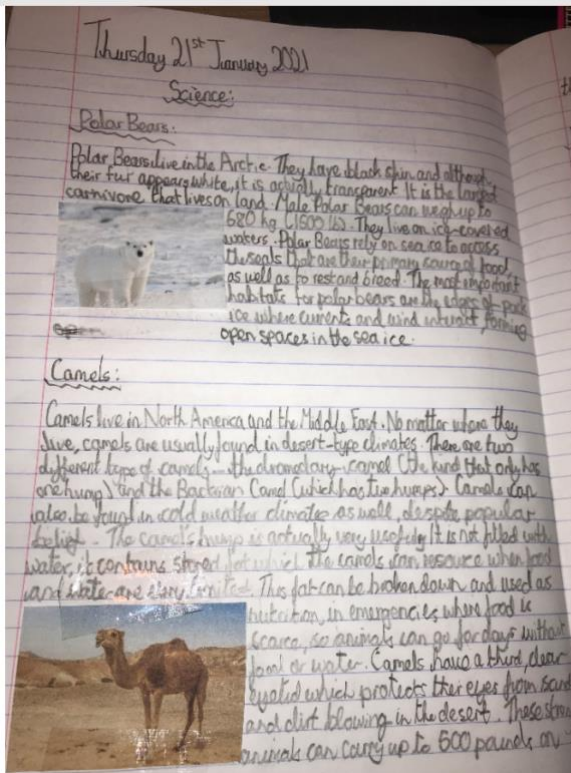 Thursday 21st January 2021
Science:
Polar Bears:
Polar Bears live in the Arctic. They have black skin and although
their fur appears white, it is actually transparent. It is the largest
carnivore that lives on land. Male Polar Bears can weigh up to
680 kg (1500 lb). They live on icy-covered
waters. Polar Bears rely on sea ice to access
the seals that are their primary source of food,
as well as to rest and breed. The most important
habitats for polar bears are the edges of pack
ice where currents and wind interact, forming
open spaces in the sea ice.
Camels:
Camels live in North America and the Middle East. No matter where they
live, camels are usually found in desert-type climates. There are two
different type of camels - the dromedary camel (the kind that only has
one hump) and the Bactrian Camel (which has two humps). Camels can
also be found in cold weather climates as well, despite popular
belief. The camel's hump is actually very useful. It is not filled with
water, it contains stored fat which the camels can resource when food
and water are very limited. This fat can be broken down and used as
nutrition, in emergencies where food is
scarce, so animals can go for days without
food or water. Camels have a third, clear
eyelid which protects their eyes from sand
and dirt blowing in the desert. These
animals can carry up to 600 pounds on